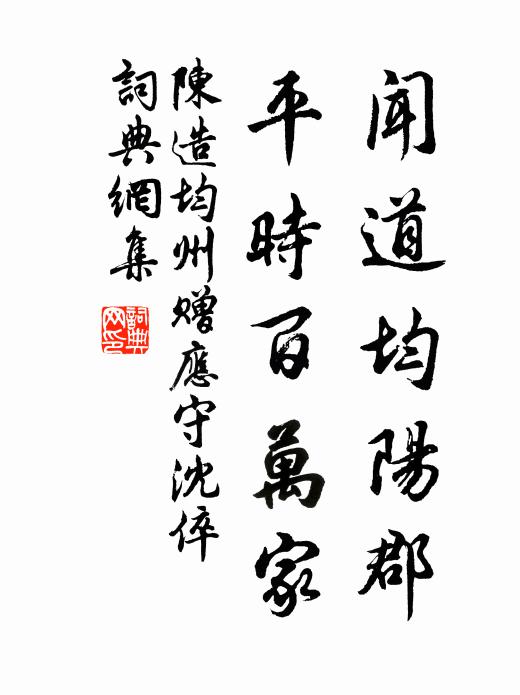 聞道均陽郡
平時百萬家
陳造均州贈應守沈倅
詞典網集
詞典网印